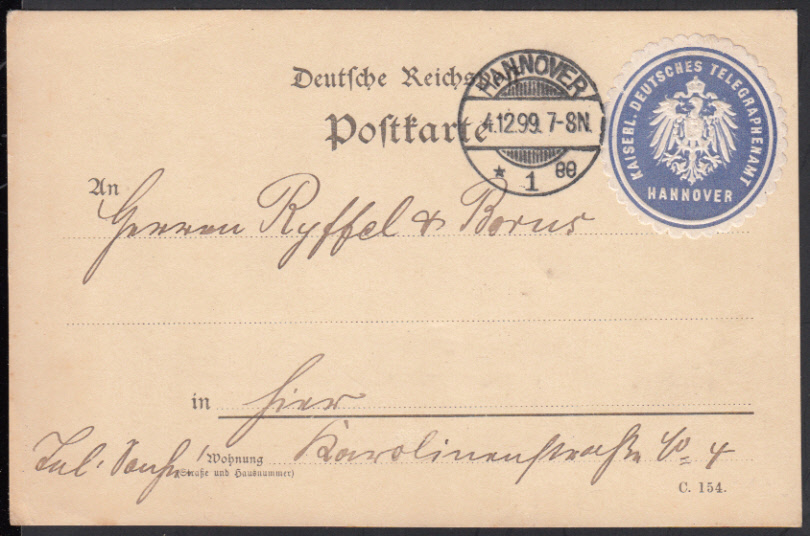 Deutsche Reichspost
HANNOVER
4.12.99. 7-8N.
* 1 gg
KAISERL. DEUTSCHES TELEGRAPHENAMT
HANNOVER
Postkarte
An
Herren Ryffel & Borns
in hier
Tel. Sache! Wohnung Karolinenstraße No 4
(Straße und Hausnummer)
C. 154.